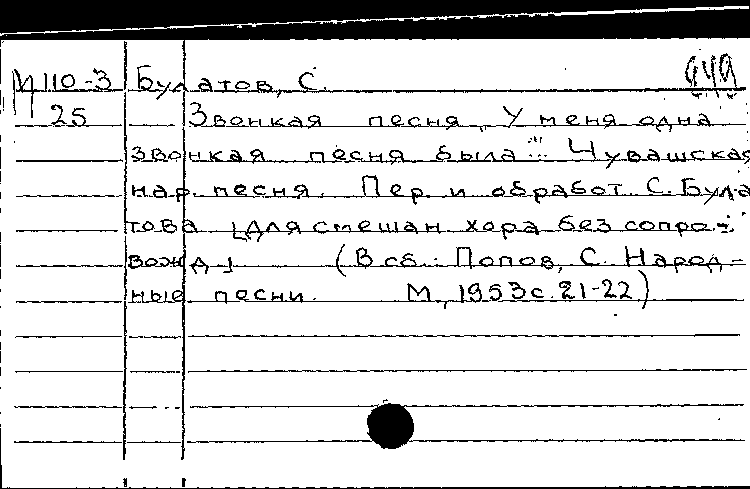 М 110-3 Булатов, С.
25 Звонкая песня. "У меня одна
звонкая песня была..." Чувашская
нар. песня. Пер. и обработ. С. Була
това [Для смешан. хора без сопро-
вожд.] (В сб.: Попов, С. Народ-
ные песни. М., 1953 с. 21-22)